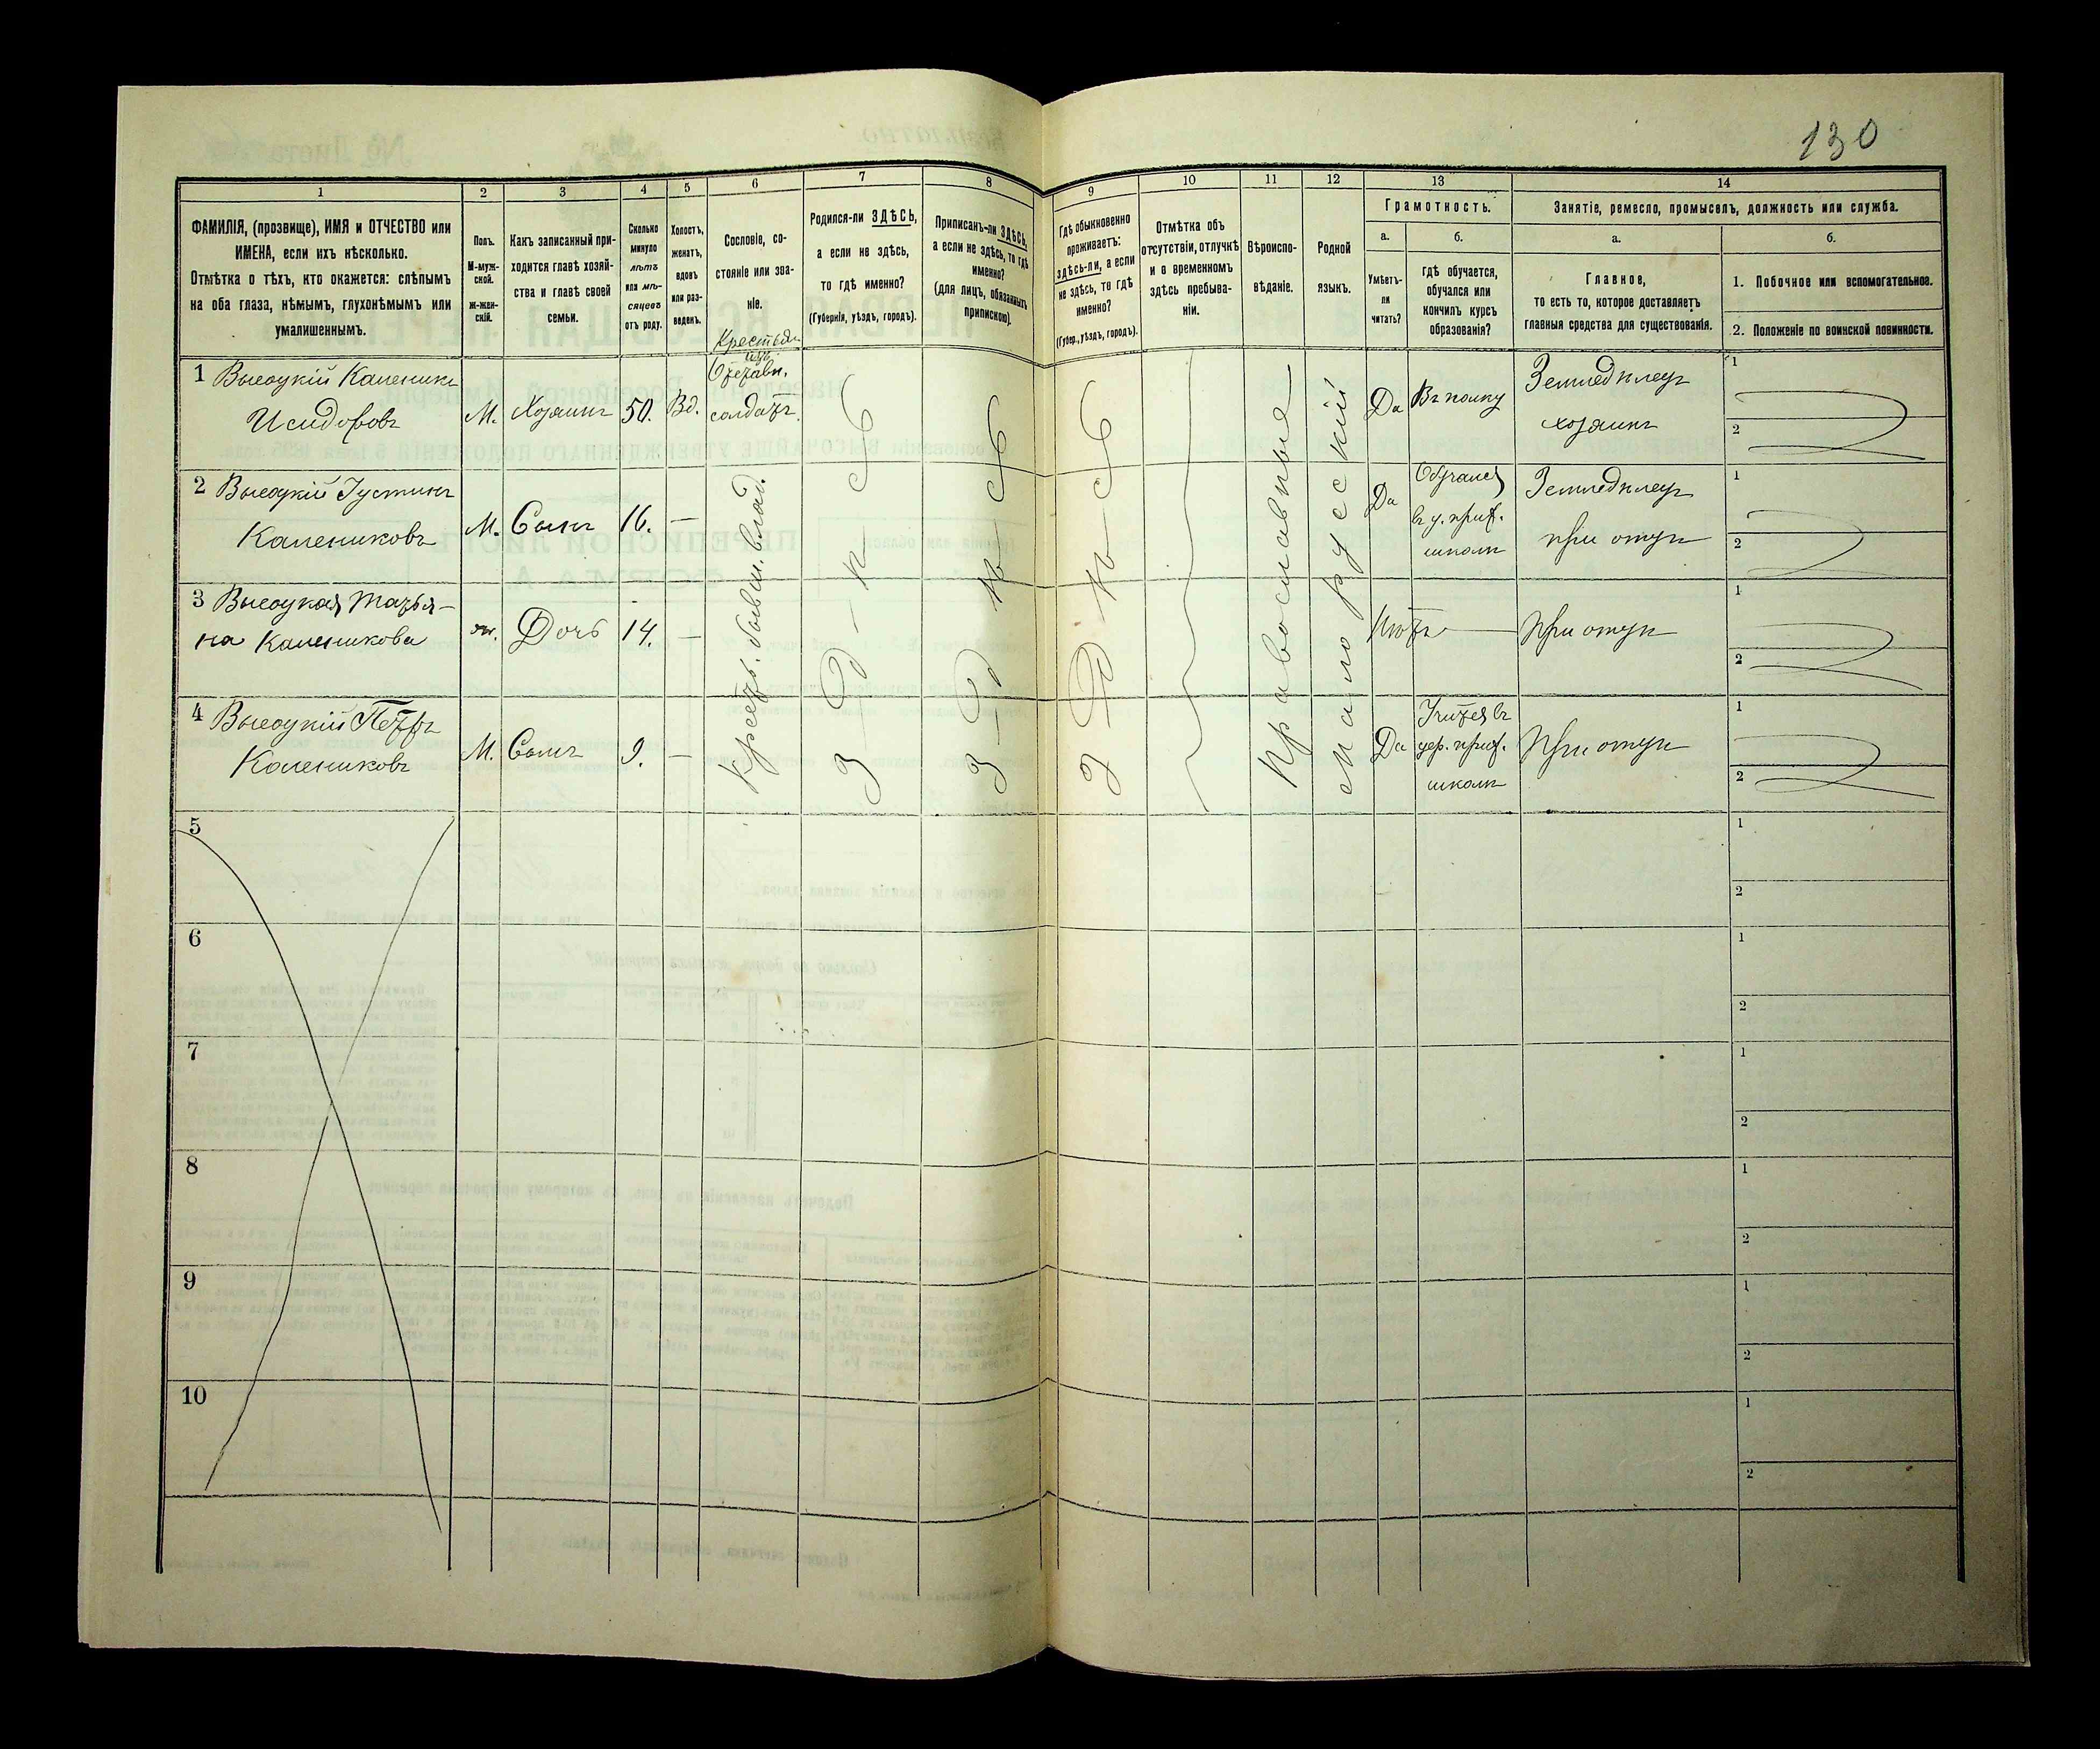 130
1 2 3 4 5 6 7 8 9 10 11 12 13 14
ФАМИЛІЯ, (прозвище), ИМЯ и ОТЧЕСТВО или
ИМЕНА, если ихъ нѣсколько.
Отмѣтка о тѣхъ, кто окажется: слѣпымъ
на оба глаза, нѣмымъ, глухонѣмымъ или
умалишеннымъ.
Полъ.
М-муж-
ской.
Ж-жен-
скій.
Какъ записанный при-
ходится главѣ хозяй-
ства и главѣ своей
семьи.
Сколько
минуло
лѣтъ
или мѣ-
сяцевъ
отъ роду.
Холостъ,
женатъ,
вдовъ
или раз-
веденъ.
Сословіе, со-
стояніе или зва-
ніе.
Родился-ли ЗДѢСЬ,
а если не здѣсь,
то гдѣ именно?
(Губернія, уѣздъ, городъ).
Приписанъ-ли ЗДѢСЬ,
а если не здѣсь, то гдѣ
именно?
(для лицъ, обязанныхъ
припискою).
Гдѣ обыкновенно
проживаетъ:
здѣсь-ли, а если
не здѣсь, то гдѣ
именно?
(Губер., уѣздъ, городъ).
Отмѣтка объ
отсутствіи, отлучкѣ
и о временномъ
здѣсь пребыва-
ніи.
Вѣроиспо-
вѣданіе.
Родной
языкъ.
Грамотность.
а.
Умѣетъ-
ли
читать?
б.
Гдѣ обучается,
обучался или
кончилъ курсъ
образованія?
Занятіе, ремесло, промыселъ, должность или служба.
а.
Главное,
то есть то, которое доставляетъ
главныя средства для существованія.
б.
1. Побочное или вспомогательное.
2. Положеніе по воинской повинности.
1 Высоцкій Каленикъ
Исидоровъ
М. Хозяинъ 50. Вд.
Крестьян.
изъ
Отставн.
солдатъ.
Да Въ полку
Земледѣлецъ
хозяинъ
1
2
2 Высоцкій Іустинъ
Калениковъ
М. Сынъ 16. —
Да
Обучался
въ ц. прих.
школѣ
Земледѣлецъ
при отцѣ
1
2
3 Высоцкая Татья-
на Каленикова
ж. Дочь 14. —
Нѣтъ —
При отцѣ
1
2
4 Высоцкій Петръ
Калениковъ
М. Сынъ 9. —
Да
Учится въ
цер. прих.
школѣ
При отцѣ
1
2
Крестьян. бывш. влад.
З д ѣ с ь
З д ѣ с ь
З д ѣ с ь
Православные
малорусскій
5
1
2
6
1
2
7
1
2
8
1
2
9
1
2
10
1
2